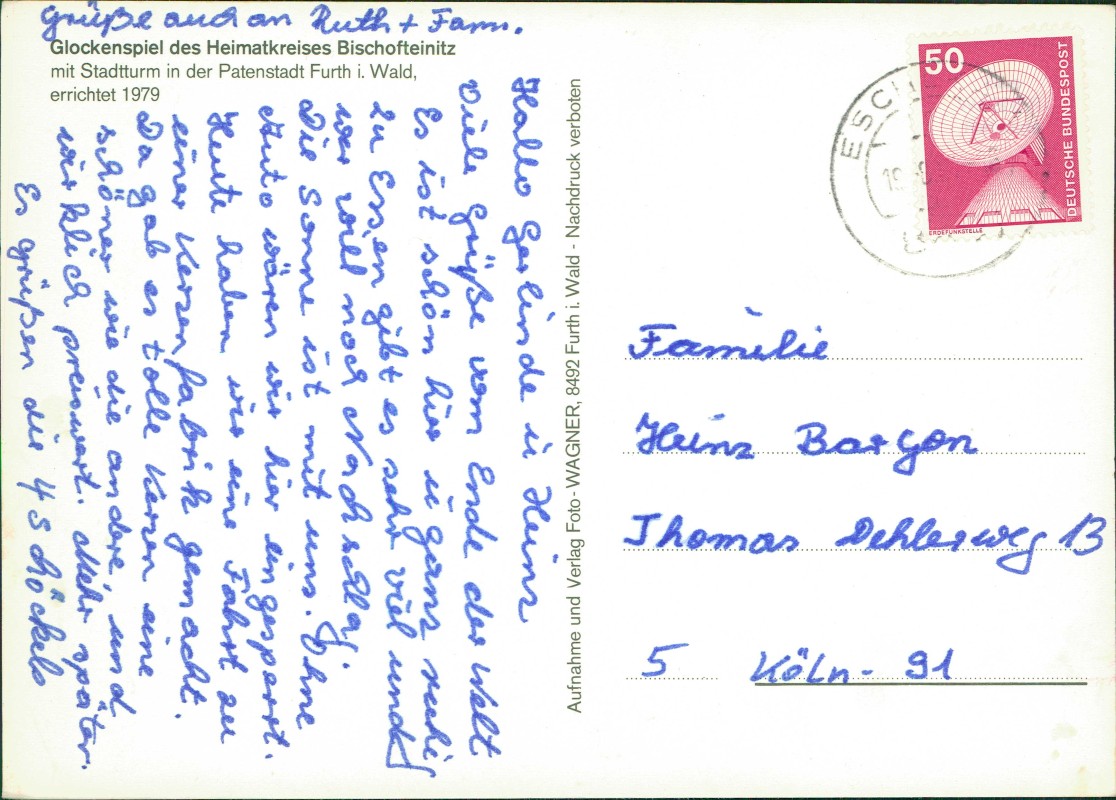 Grüße auch an Ruth + Fam.
Glockenspiel des Heimatkreises Bischofteinitz
mit Stadtturm in der Patenstadt Furth i. Wald,
errichtet 1979
Hallo Gerlinde u Heinz
Viele Grüße vom Ende der Welt
Es ist schön hier u ganz ruhi
zu Essen gibt es sehr viel und
wer will noch Nachschlag.
Die Sonne ist mit uns. Ohne
Auto wären wir hier eingesperrt.
Heute haben wir eine Fahrt zu
einer Kerzenfabrik gemacht.
Da gab es tolle Kerzen eine
schöner wie die andere, und
wirklich preiswert. Mehr später.
Es grüßen die 4 Schöckels
Aufnahme und Verlag Foto-WAGNER, 8492 Furth i. Wald - Nachdruck verboten
50
DEUTSCHE BUNDESPOST
ERDEFUNKSTELLE
ESCH
Familie
Heinz Bargon
Thomas Dehlerweg 13
5 Köln - 91